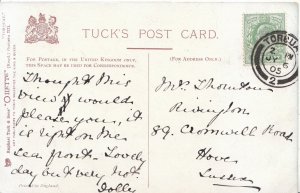 TUCK'S POST CARD.
FOR POSTAGE IN THE UNITED KINGDOM ONLY,
THIS SPACE MAY BE USED FOR CORRESPONDENCE.
(FOR ADDRESS ONLY.)
Thought this
view would
please you, it
is right on the
sea front. Lovely
day but very hot
Dolly
Mrs Thornton
89, Cromwell Road
Hove
Sussex
TORQU
2
05
2
Raphael Tuck & Sons' "OILETTE"
Printed in England.